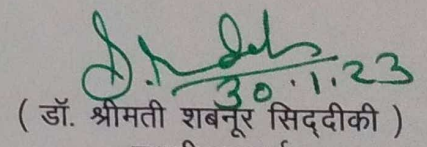 30.1.23
( डॉ. श्रीमती शबनूर सिद्दीकी )